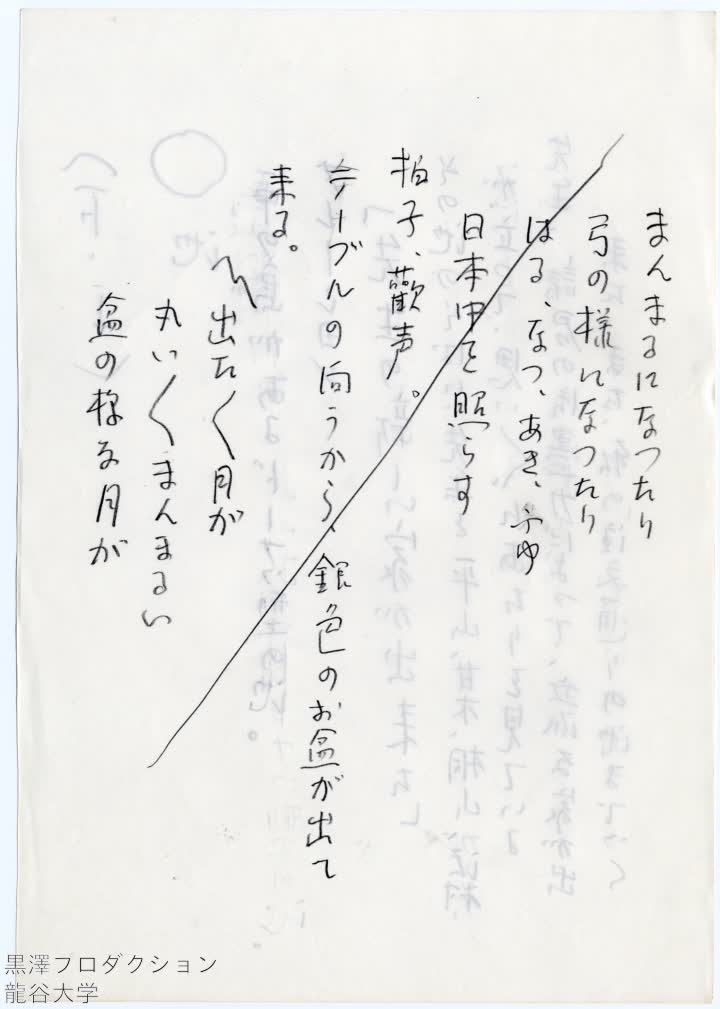 まんまるになつたり
弓の様になつたり
はる、なつ、あき、ふゆ
日本中を照らす
拍子、歡声。
テーブルの向うから、銀色のお盆が出て
来る。
〽出た〱月が
丸い〱まんまるい
盆の様な月が
黒澤プロダクション
龍谷大学